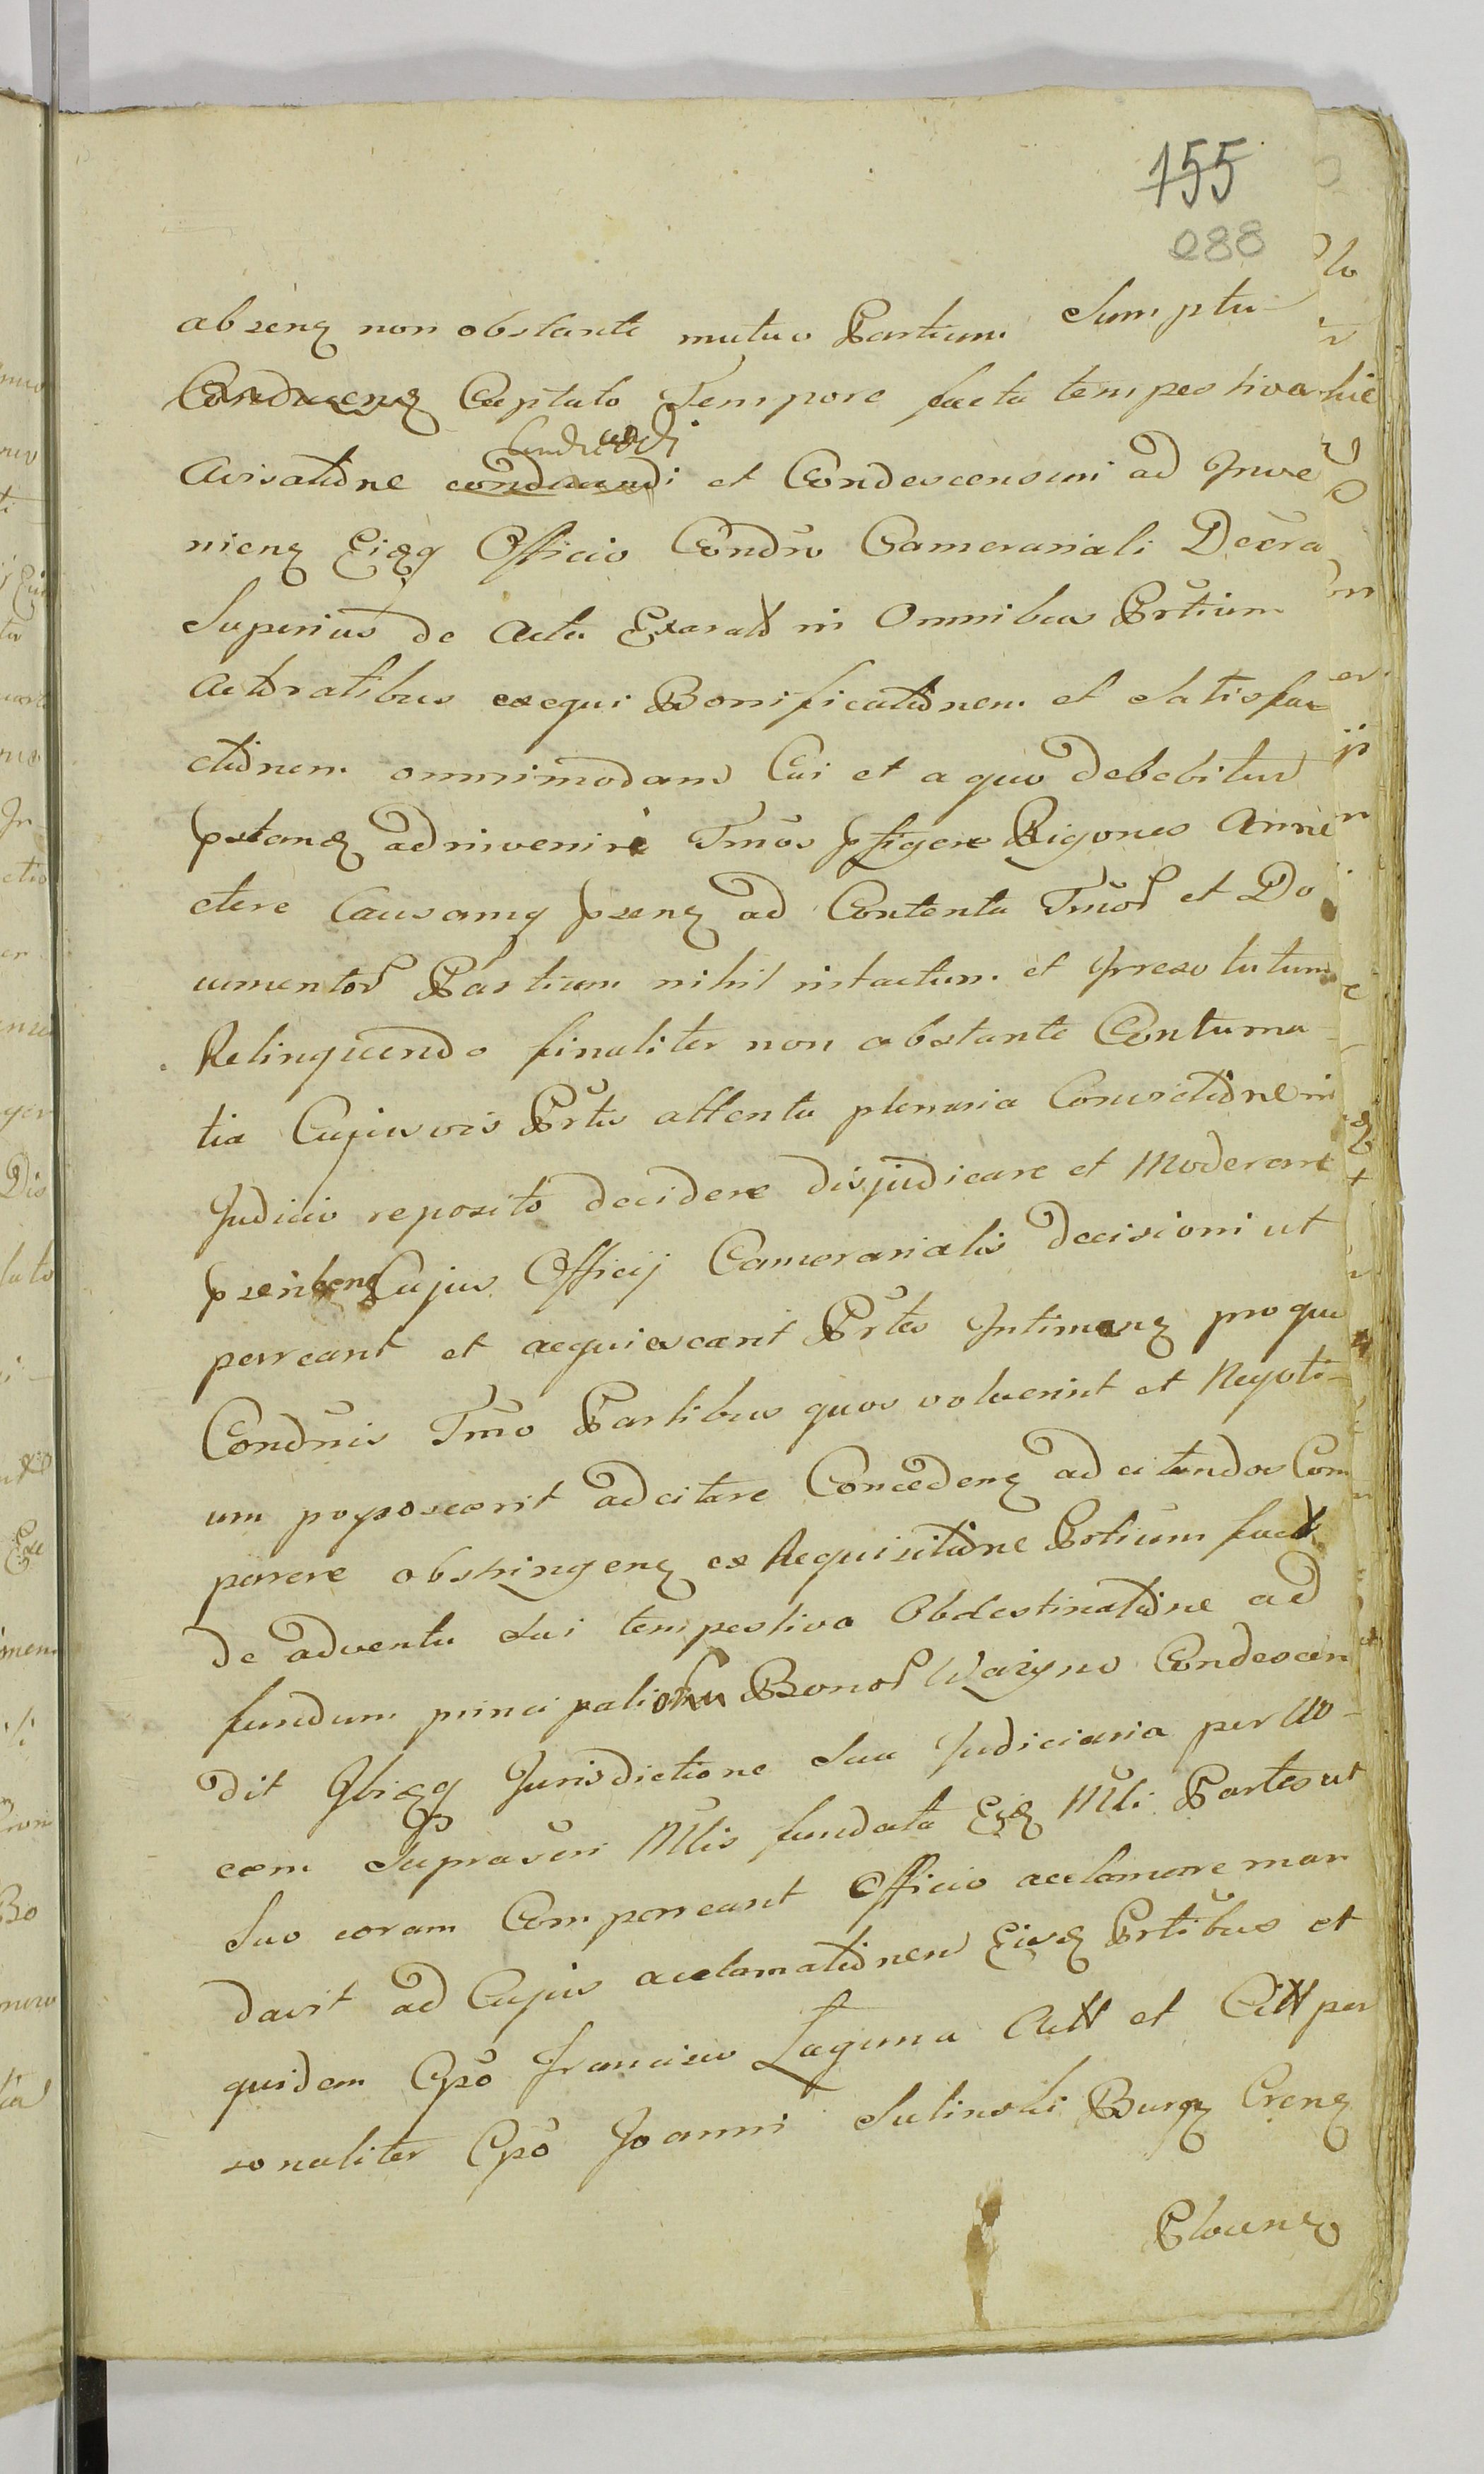 155
088
absenz non obstante mutuo Partium Sumptu
Conducenz Captato Tempore facta tempestiva hic
Condicendi
Avisatione conducendi et Condescensuri ad Inve
nienz Eisqz Officio Condno Camerariali Decra
Superius de Actu Exarat in Omnibus Prtium
Actoratibus exequi Bonificationem et Satisfa
ctionem omnimodam Cui et a quo debebitur
pstanz adinvenire Tmos pfigere Rigores Anne
ctere Causamq psenz ad Contenta Tmor et Do
cumentor Partium nihil intactum et Irresolutum
Relinquendo finaliter non obstante Contuma
tia Cujusvis Prtis attenta plenaria Convictione in
Judicio reposito decidere disjudicare et Moderare
Cujus Officij Camerarialis decisioni ut
parreant et acquiescant Prtes Intimanz pro qu
Condnis Tmo Partibus quos voluerint et Negoti
um poposcerit adcitare Concedenz ad citandos Com
parere obstringenz ex Requisitione Prtium fact
de adventu Sui tempestiva Obdestinatione ad
fundum principalior Bonor Wazyno Condescen
dit Ibiqz Jurisdictione Sua Judiciaria per Mo
cem Suprascri Mtlis fundata Ejz Mtli Partes ut
Suo coram Compareant Officio acclamare man
davit ad Cujus acclamationem Eisz Prtibus et
quidem Gso Francisco Laguna Actt et Citt per
sonaliter Gso Joanni Sulinski Burgz Crenz
Plocenz